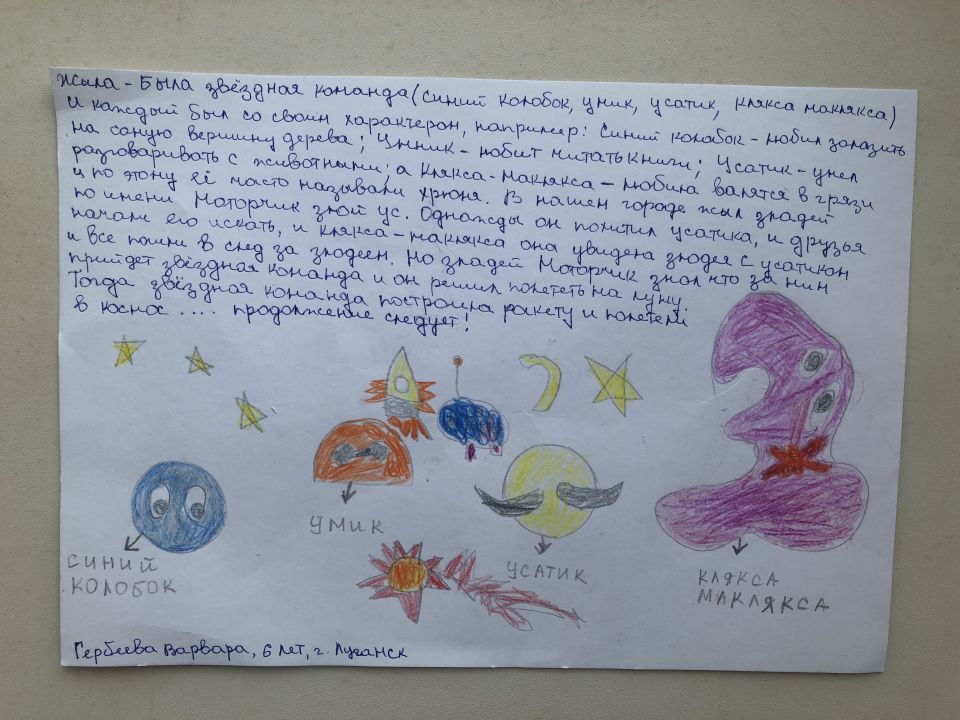 Жила-Была звёздная команда (синий колобок, умик, усатик, клякса маклякса)
и каждый был со своим характером, например: Синий колобок - любил залазить
на самую вершину дерева; Умник - любит читать книги; Усатик - умел
разговаривать с животными; а Клякса-Маклякса - любила валятся в грязи
и по этому её часто называли хрюня. В нашем городе жыл зладей
по имени Моторчик злой ус. Однажды он похитил усатика, и друзья
начали его искать, и клякса-маклякса она увидела злодея с усатиком
и все пошли в след за злодеем. Но зладей Моторчик знал что за ним
прийдет звёздная команда и он решил полететь на луну.
Тогда звёздная команда построила ракету и полетели
в космос .... продолжение следует!
УМИК
СИНИЙ
КОЛОБОК
УСАТИК
КЛЯКСА
МАКЛЯКСА
Гербеева Варвара, 6 лет, г. Луганск